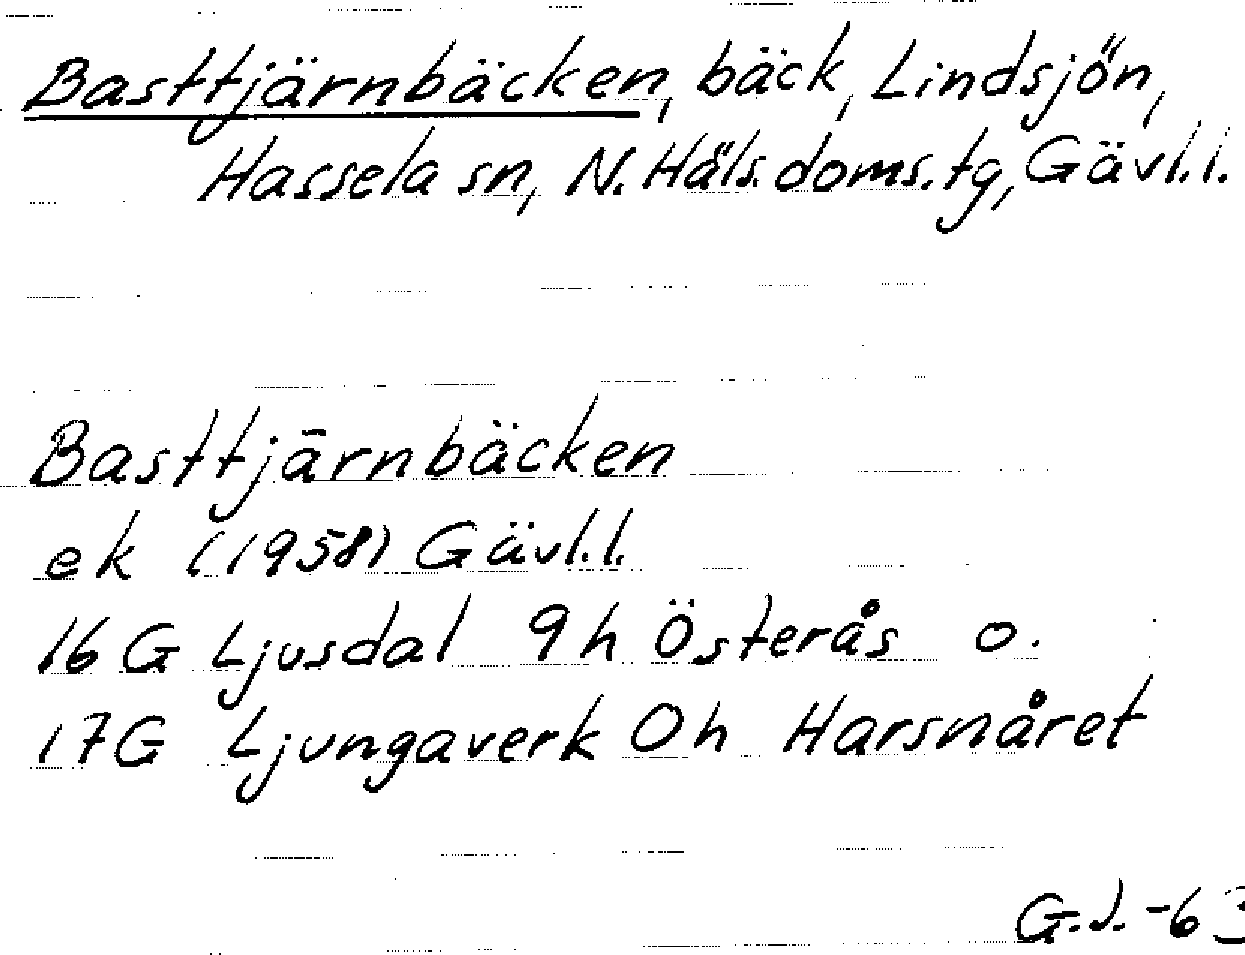 Basttjärnbäcken, bäck, Lindsjön,
Hassela sn, N. Häls. doms. tg, Gävl.l.
Basttjärnbäcken
ek (1958) Gävl.l.
16 G Ljusdal 9h Österås o.
17G Ljungaverk 0h Harsnåret
G.J. -63